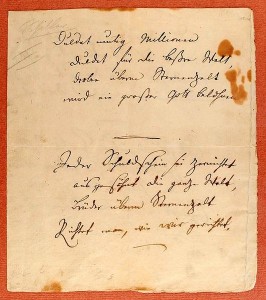 Duldet mutig Millionen
Duldet für die beßre Welt
droben überm Sternenzelt
wird ein großer Gott belohnen
Jeder Schuldschein sei zernichtet
ausgesöhnt die ganze Welt,
Brüder überm Sternenzelt
Richtet man, wie wir gerichtet.